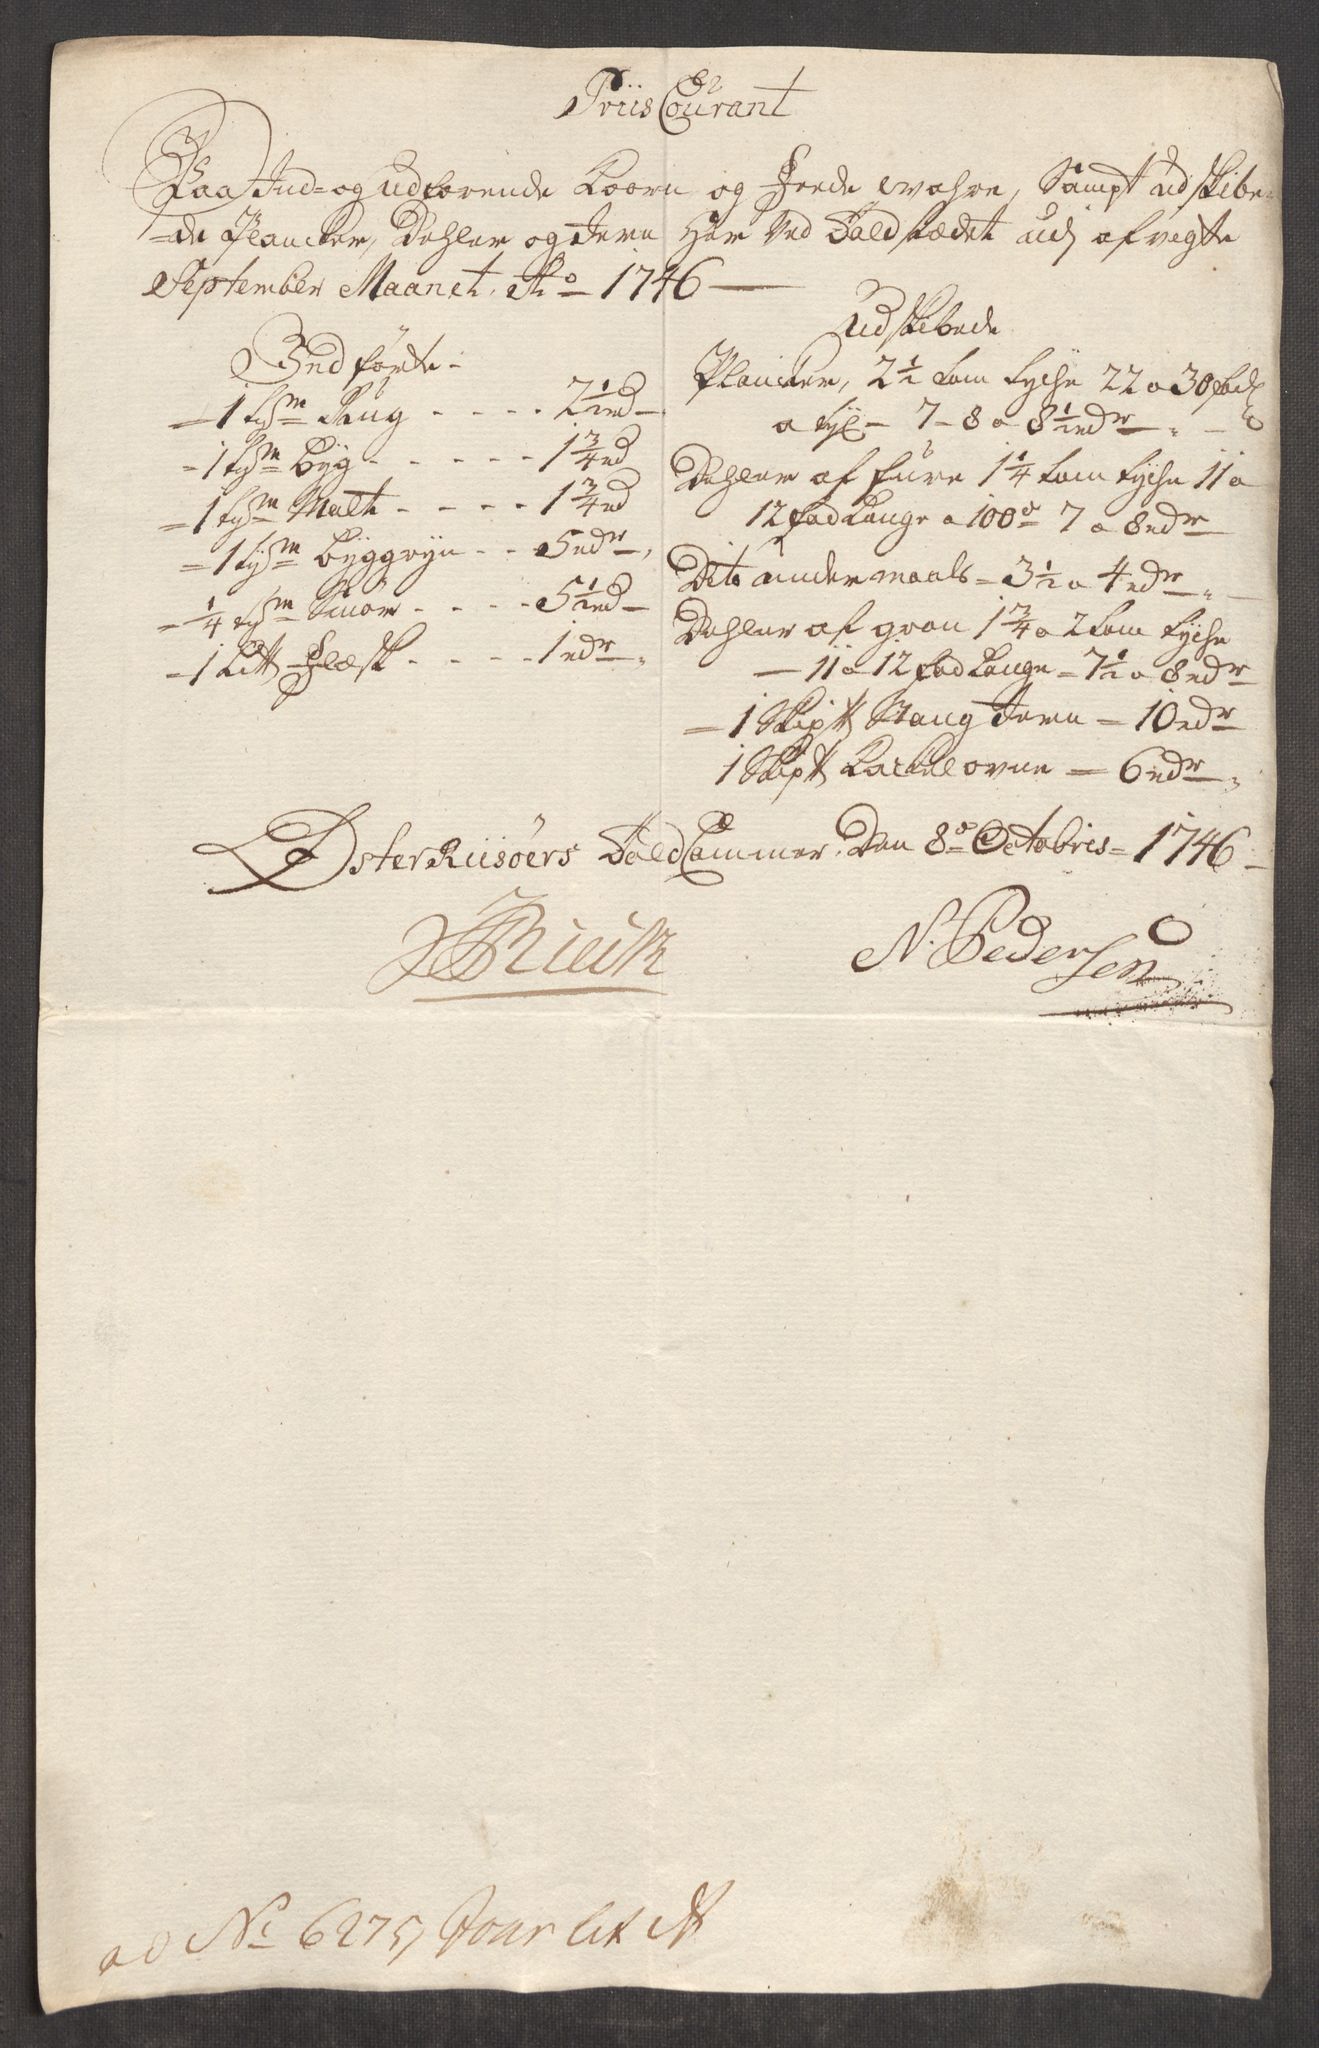 Priis Courant
Paa Ind= og Udførende Koorn og Feede Wahre, Sampt Udskibe=
=de Plancker, Dehler og Jern Her Ved Told stædet udj afvigte
September Maanet Ao 1746
Indførte
1 tø̈m Rug - - - - 2 1/2 rd
1 tø̈m Byg - - - - - 1 3/4 rd
1 tø̈m Malt - - - - 1 3/4 rd
1 tø̈m Byggryn - - 5 rdr
1/4 tø̈m Smør - - - - 5 1/2 rd
1 Litt Flæsk - - - - 1 rdr
Udskibede
Plancker, 2 1/2 tom tycke 22 a 30 fod
a tylt 7 - 8 a 8 1/2 rdr
Dehler af fure 1 1/4 tom tycke 11 a
12 fod Lange a 100de 7 a 8 rdr
Dito undermaals 3 1/2 a 4 rdr
Dehler af gran 1 3/4 a 2 tom tycke
11 a 12 fod Lange 7 1/2 a 8 rdr
1 Skptt Stang Jern 10 rdr
1 Skptt Kackelovne 6 rdr
Øster Riisøers Told Cammer, Den 8de Octobris 1746
N. Pedersen
ad No 6275 Jour lit A